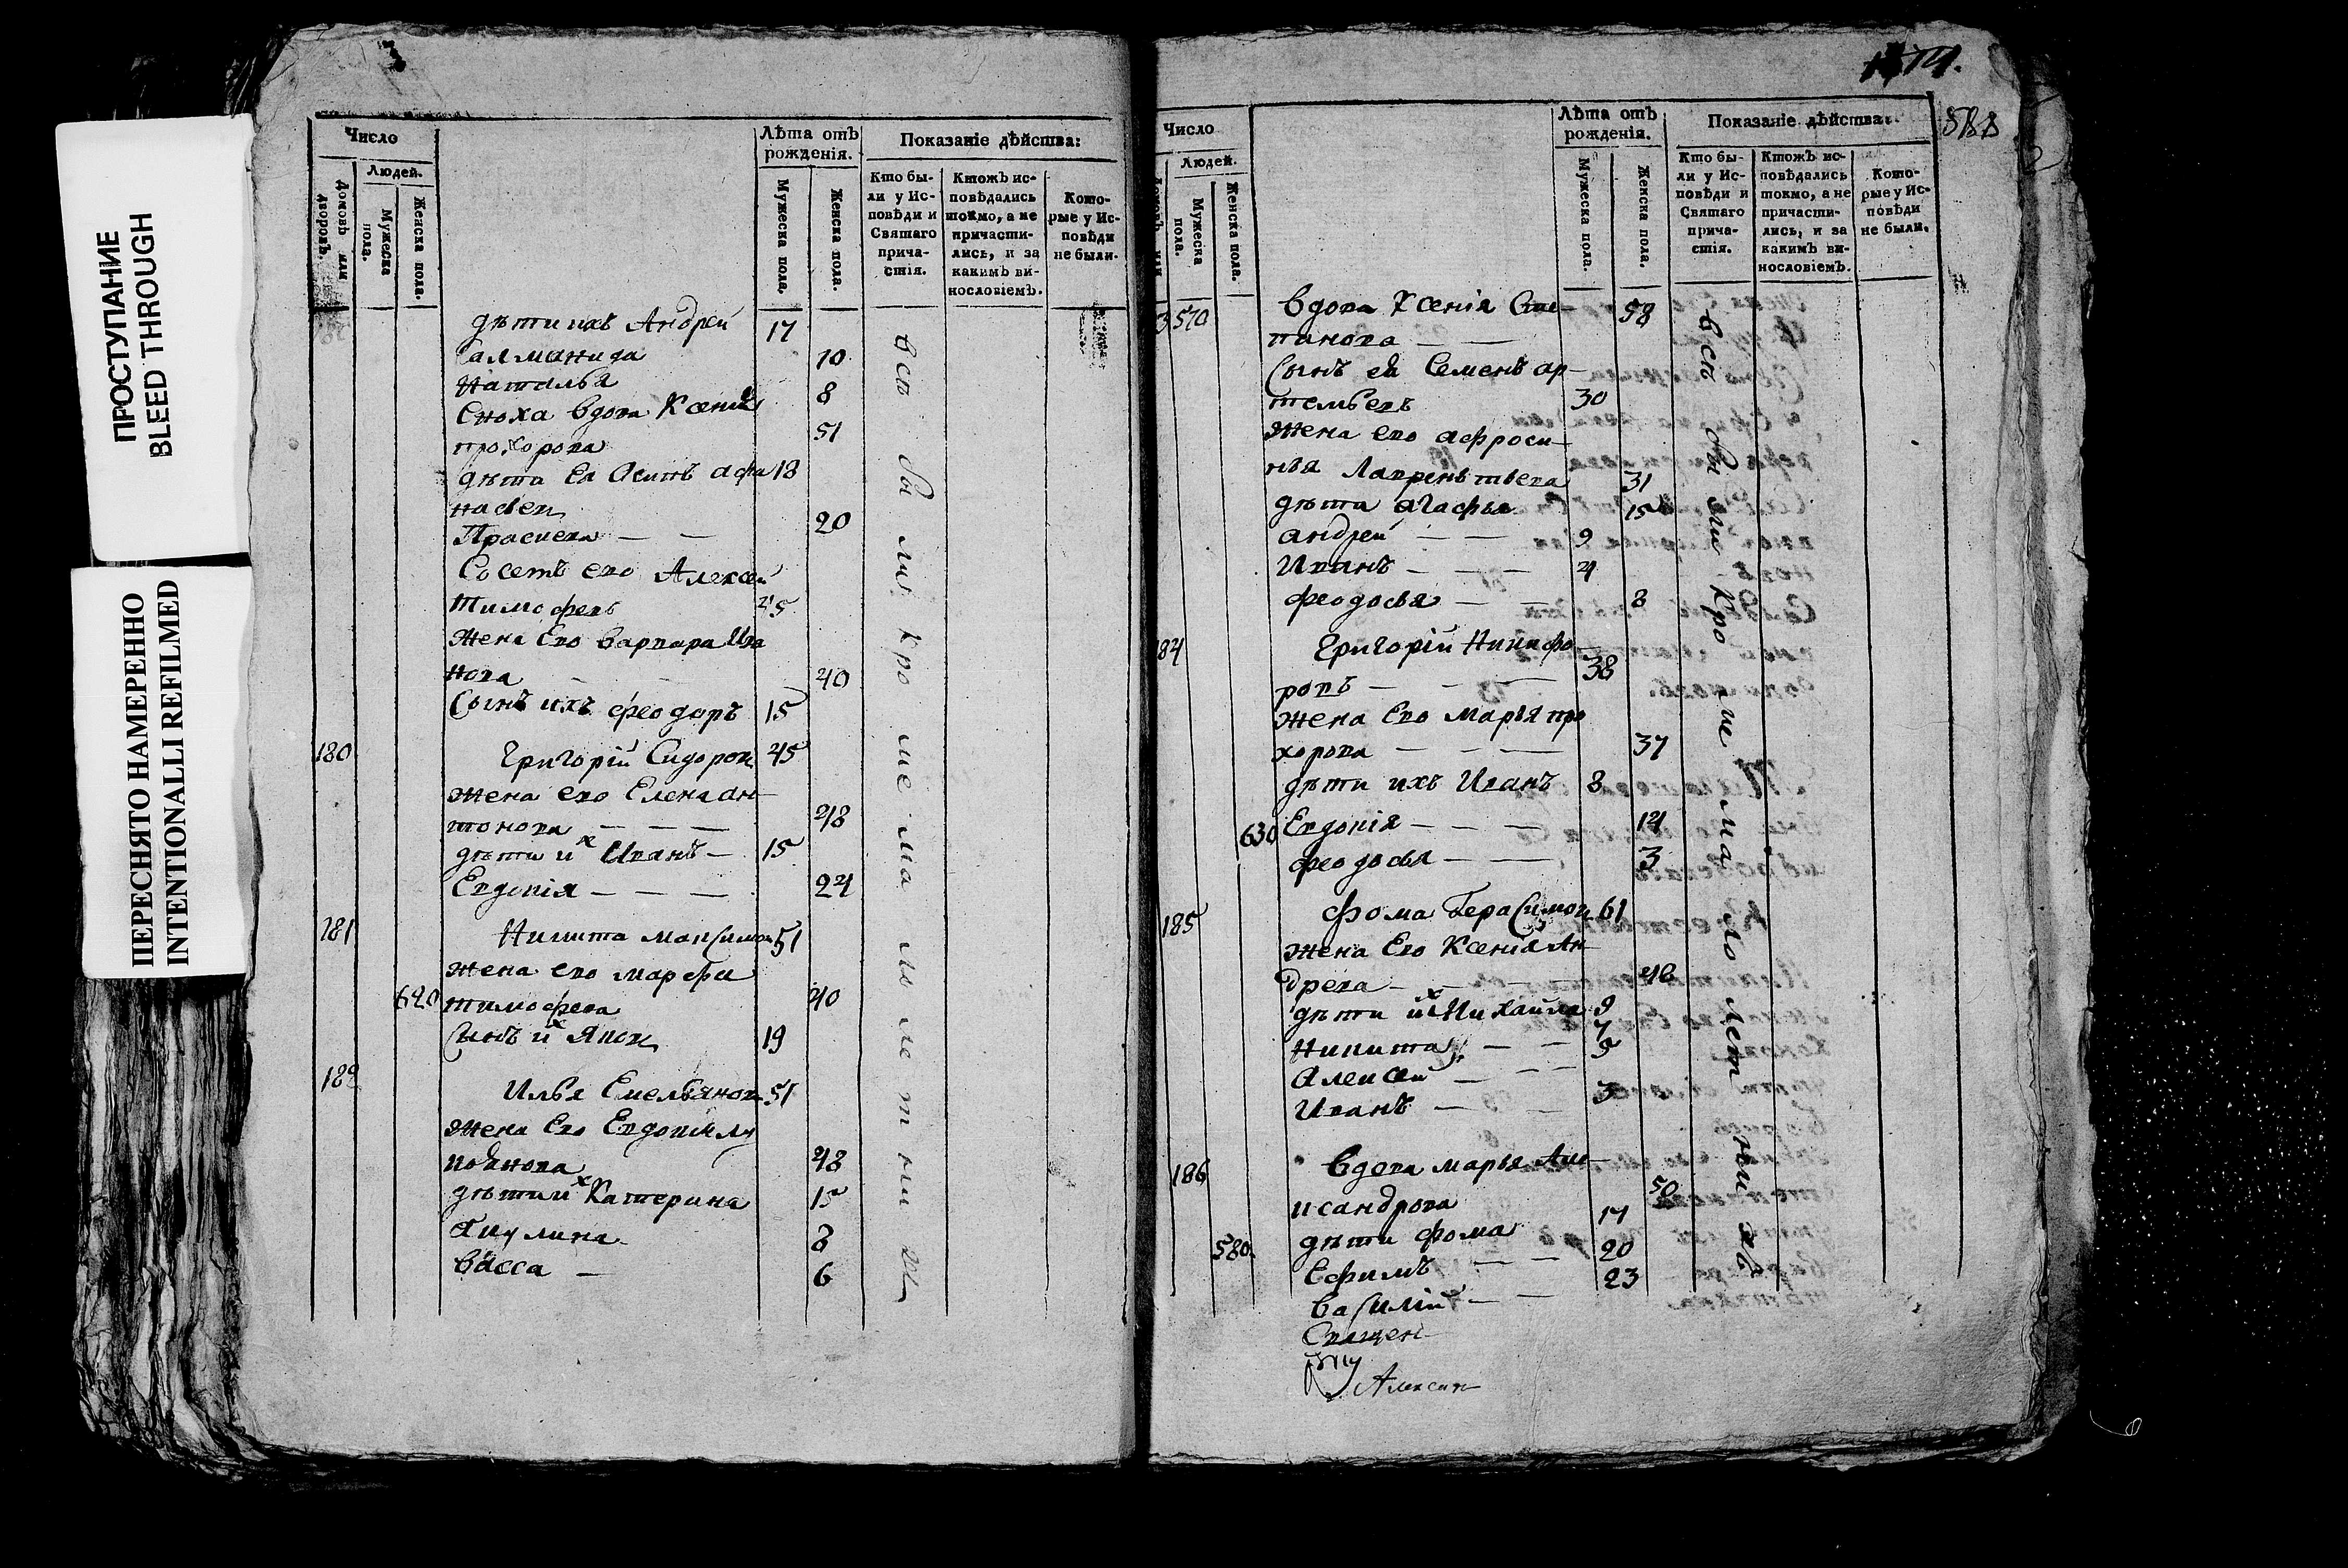 ПРОСТУПАНИЕ
BLEED THROUGH
ПЕРЕСНЯТО НАМЕРЕННО
INTENTIONALLI REFILMED
Число
Людей.
Домовъ или дворовъ.
Мужеска пола.
Женска пола.
Лѣта отъ рожденія.
Мужеска пола.
Женска пола.
Показаніе дѣйства:
Кто были у Исповѣди и Святаго причастія.
Ктожъ исповѣдались токмо, а не причастились, и за какимъ винословіемъ.
Которые у Исповѣди не были.
дѣти ихъ Андрей 17
Салманида 10
Наталья 8
Сноха вдова Ксенія
прохорова 51
дѣти Ея Осипъ Афа 18
насьев
Прасковья — — 20
Сосетъ его Алексей
Тимофеевъ 45
Жена Его варвара Ива
нова 40
Сынъ ихъ феодоръ 15
180 Григорій Сидоров 45
жена его Елена ан—
тонова — — — 48
дѣти их Иванъ — 15
Евдокія — — — 24
181 Никита максимов 51
жена его марфа
620 тимофеева 40
Сынъ их Яков 19
182 Илья Емельянов 51
жена Его Евдокия лу
коянова 48
дѣти их Катерина 15
Акулина 8
васса — 6
всѣ были кроме малолетних
14.
Число
Людей.
Домовъ или
Мужеска пола.
Женска пола.
Лѣта отъ рожденія.
Мужеска пола.
Женска пола.
Показаніе дѣйства:
Кто были у Исповѣди и Святаго причастія.
Ктожъ исповѣдались токмо, а не причастились, и за какимъ винословіемъ.
Которые у Исповѣди не были.
3 570 вдова Ксенія Сте— 58
панова — —
Сынъ ея Семенъ ар—
темьевъ 30
жена его афроси—
нья Лаврентьева 31
дѣти агафья 15
андрей — — 9
Иванъ — — — 4
феодосья — — 8
184 Григорій Никифо
ровъ — — — 38
жена Его марья про
хорова — — — 37
дѣти ихъ Иванъ 8
630 Евдокія — — — 14
феодосья — — 3
185 фома Герасимов 61
жена Его Ксенія Ан
дреева — — — 48
дѣти их Михайла 9
Никита — — 7
Алексей — — — 5
Иванъ — — 3
186 вдова марья Але—
ксандрова 50
дѣти фома 17
580 Ефимъ — — 20
василій — — 23
Священ—
Алексий
всѣ были кроми малолетнихъ